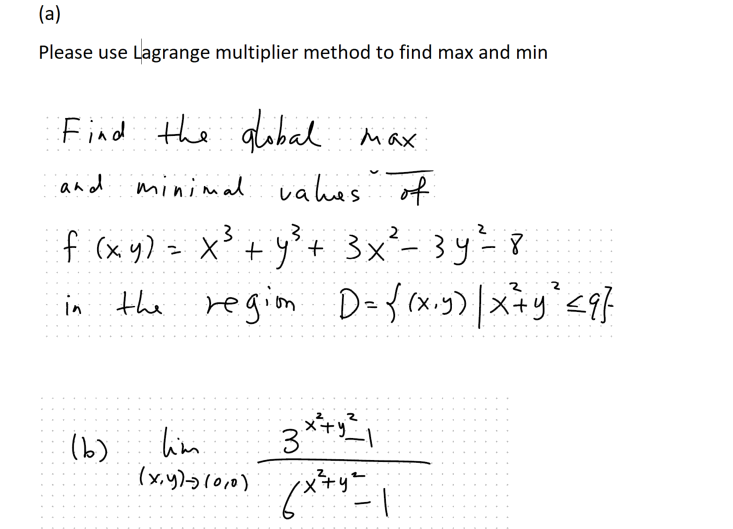 (a)
Please use Lagrange multiplier method to find max and min
Find the global max
and minimal values of
f (x,y) = x³ + y³ + 3x² - 3y² - 8
in the region D = { (x,y) | x² + y² ≤ 9 }
(b) lim (x,y)→(0,0) (3^(x²+y²) - 1) / (6^(x²+y²) - 1)